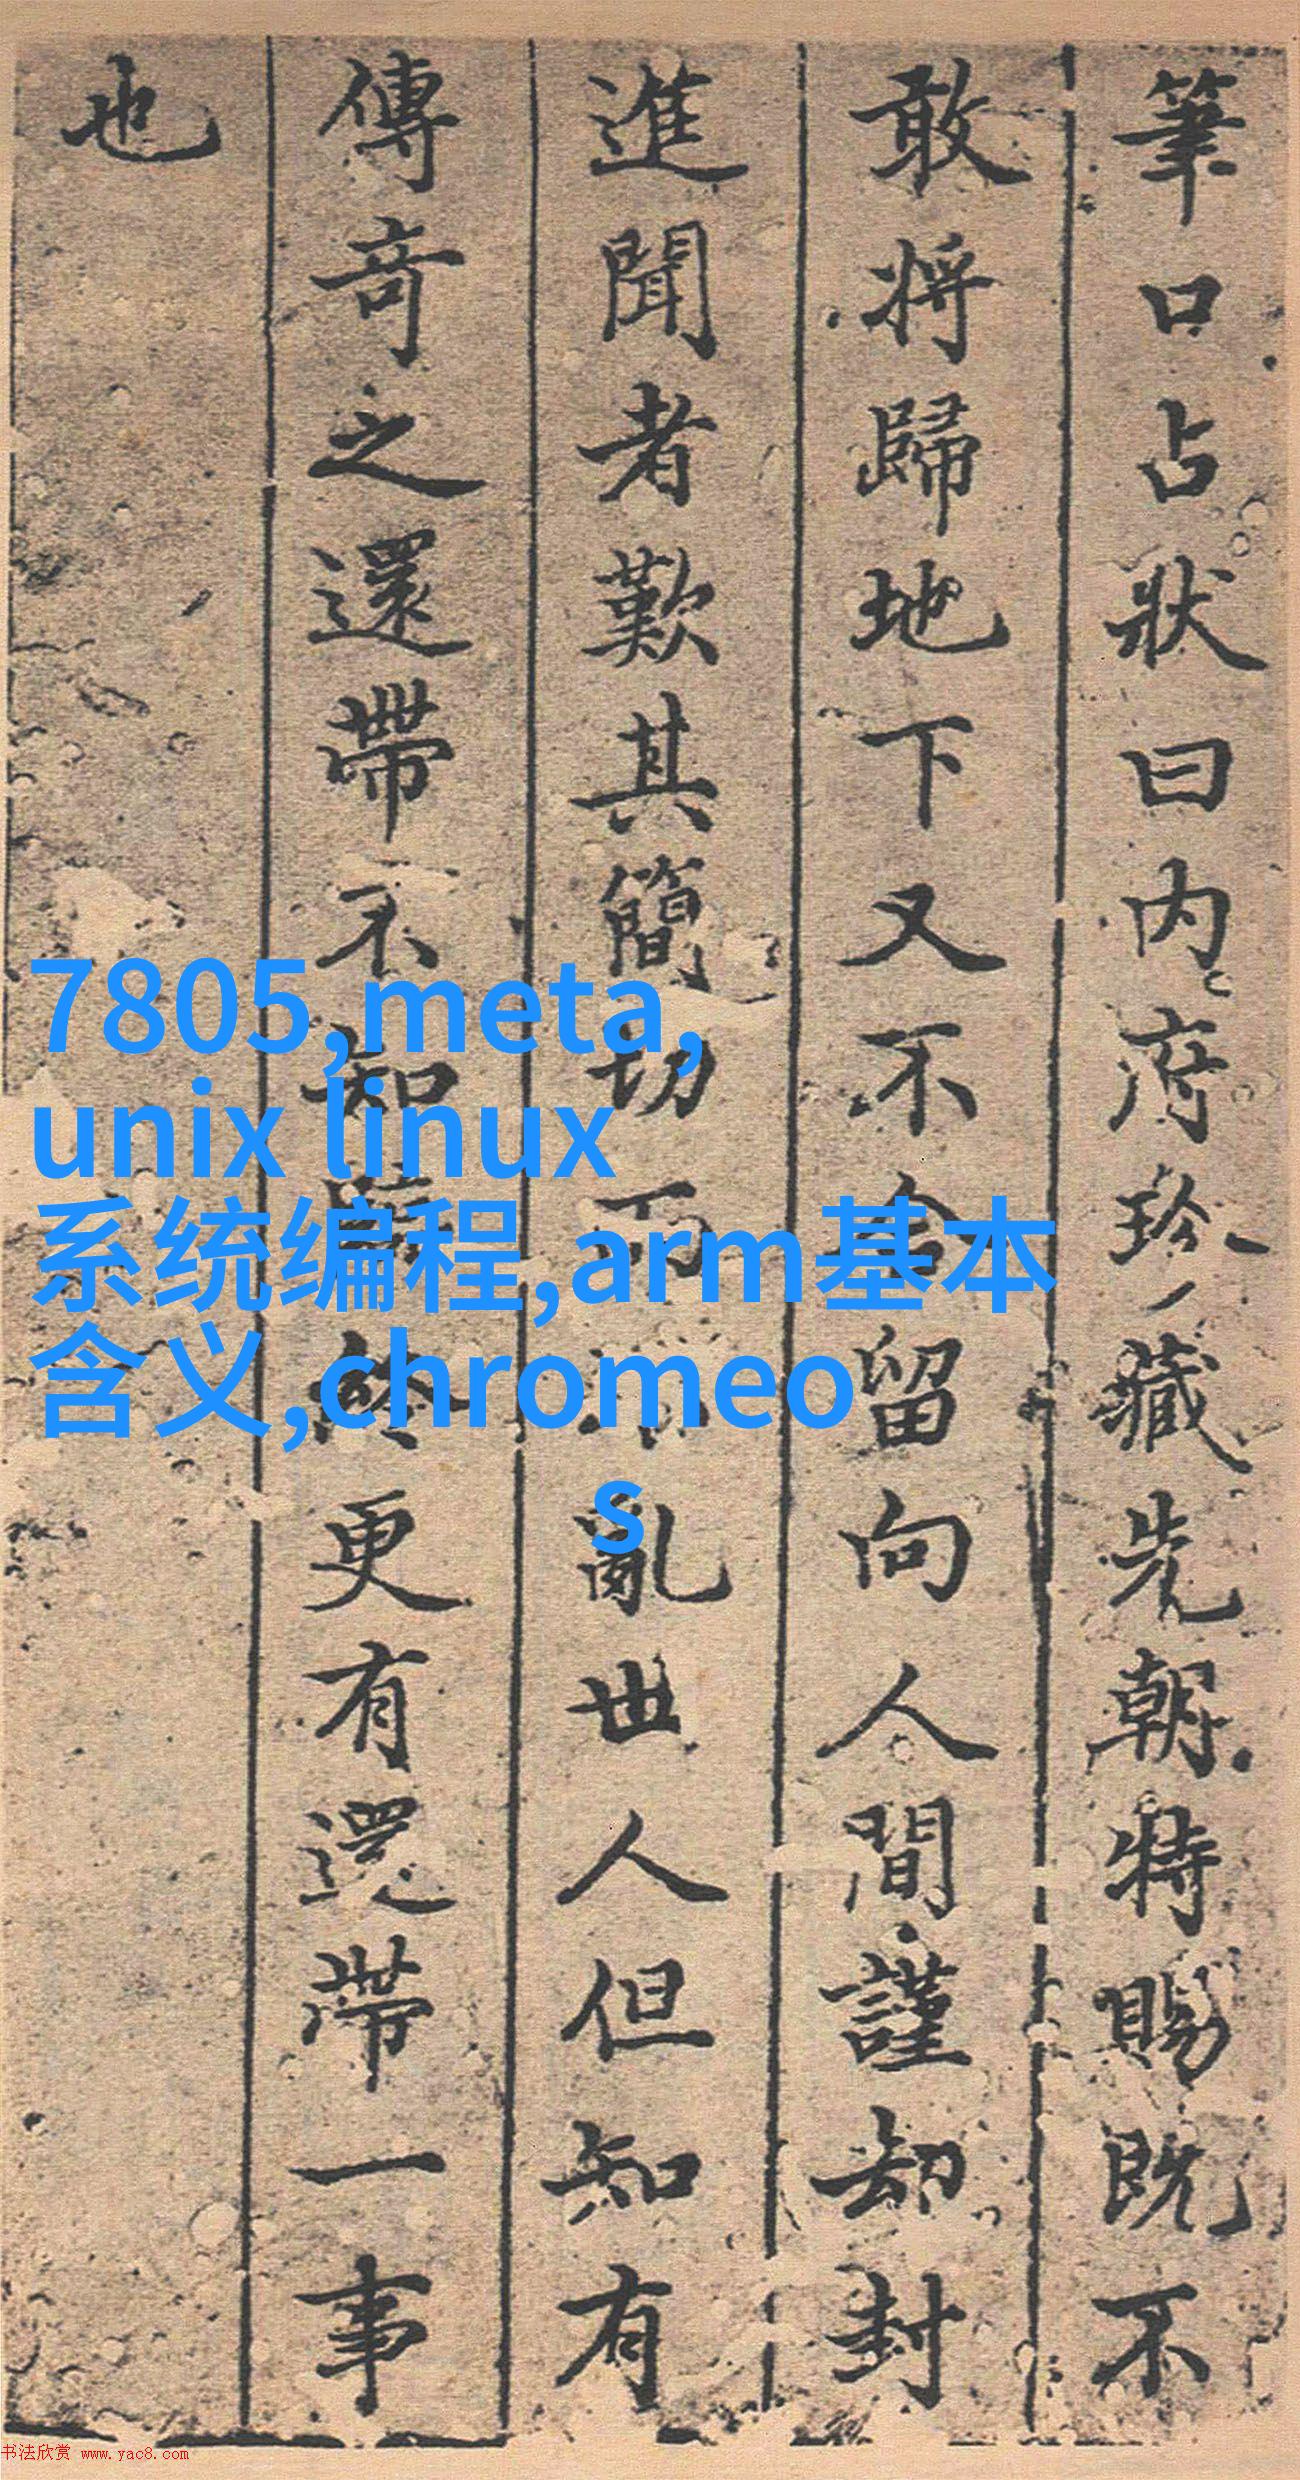 筆口占狀曰内府珍藏先朝特賜既不
敢將歸地下又不合留向人間謹却封
進聞者歎其簡切而不亂世人但知有
傳奇之還帶不知終更有還帶一事
也
7805,meta,
unix linux
系统编程,arm基本
含义,chromeo
s
书法欣赏 www.yac8.com